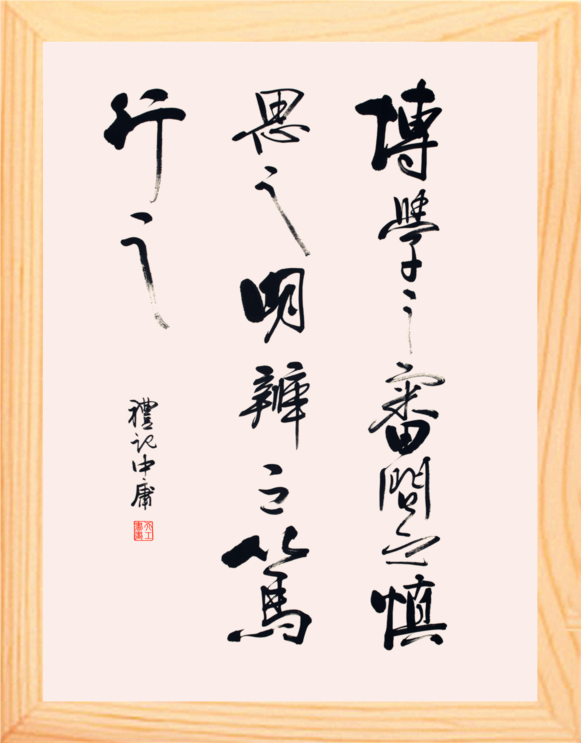 博學之審問之慎
思之明辨之篤
行之
禮記中庸